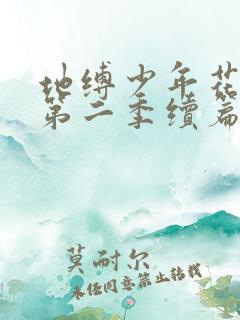 地缚少年花
第二季续篇
莫耐尔
未经同意禁止转载